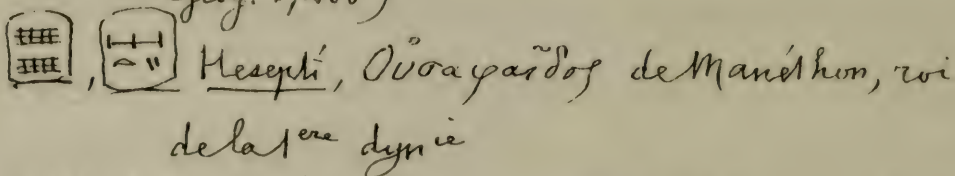 , Hesepti, Οὐσαφαῖδος de Manéthon, roi
de la 1ere dynie